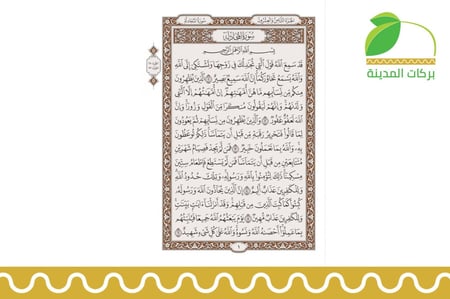 الجزء الثامن والعشرون
سورة المجادلة
سورة المجادلة
بِسْمِ اللَّهِ الرَّحْمَٰنِ الرَّحِيمِ
قَدْ سَمِعَ اللَّهُ قَوْلَ الَّتِي تُجَادِلُكَ فِي زَوْجِهَا وَتَشْتَكِي إِلَى اللَّهِ
وَاللَّهُ يَسْمَعُ تَحَاوُرَكُمَا إِنَّ اللَّهَ سَمِيعٌ بَصِيرٌ ١ الَّذِينَ يُظَاهِرُونَ
مِنكُم مِّن نِّسَائِهِم مَّا هُنَّ أُمَّهَاتِهِمْ إِنْ أُمَّهَاتُهُمْ إِلَّا الَّٰئِي
وَلَدْنَهُمْ وَإِنَّهُمْ لَيَقُولُونَ مُنكَرًا مِّنَ الْقَوْلِ وَزُورًا وَإِنَّ
اللَّهَ لَعَفُوٌّ غَفُورٌ ٢ وَالَّذِينَ يُظَاهِرُونَ مِن نِّسَائِهِمْ ثُمَّ يَعُودُونَ
لِمَا قَالُوا فَتَحْرِيرُ رَقَبَةٍ مِّن قَبْلِ أَن يَتَمَاسَّا ذَٰلِكُمْ تُوعَظُونَ
بِهِ وَاللَّهُ بِمَا تَعْمَلُونَ خَبِيرٌ ٣ فَمَن لَّمْ يَجِدْ فَصِيَامُ شَهْرَيْنِ
مُتَتَابِعَيْنِ مِن قَبْلِ أَن يَتَمَاسَّا فَمَن لَّمْ يَسْتَطِعْ فَإِطْعَامُ سِتِّينَ
مِسْكِينًا ذَٰلِكَ لِتُؤْمِنُوا بِاللَّهِ وَرَسُولِهِ وَتِلْكَ حُدُودُ اللَّهِ
وَلِلْكَافِرِينَ عَذَابٌ أَلِيمٌ ٤ إِنَّ الَّذِينَ يُحَادُّونَ اللَّهَ وَرَسُولَهُ
كُبِتُوا كَمَا كُبِتَ الَّذِينَ مِن قَبْلِهِمْ وَقَدْ أَنزَلْنَا ءَايَاتٍ بَيِّنَاتٍ
وَلِلْكَافِرِينَ عَذَابٌ مُّهِينٌ ٥ يَوْمَ يَبْعَثُهُمُ اللَّهُ جَمِيعًا فَيُنَبِّئُهُم
بِمَا عَمِلُوا أَحْصَاهُ اللَّهُ وَنَسُوهُ وَاللَّهُ عَلَىٰ كُلِّ شَيْءٍ شَهِيدٌ ٦
١
بركات المدينة